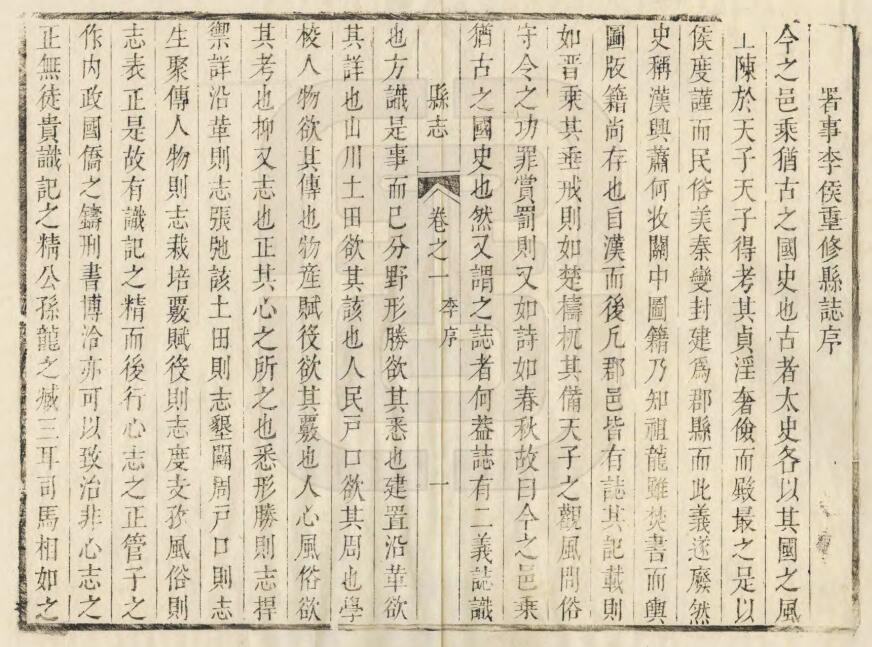 署事李侯重修縣誌序
今之邑乘猶古之國史也古者太史各以其國之風
上陳於天子天子得考其貞淫奢儉而殿最之是以
侯度謹而民俗美秦變封建爲郡縣而此義遂廢然
史稱漢興蕭何收關中圖籍乃知祖龍雖焚書而輿
圖版籍尚存也自漢而後凡郡邑皆有誌其記載則
如晋乘其垂戒則如楚檮杌其備天子之觀風問俗
守令之功罪賞罰則又如詩如春秋故曰今之邑乘
猶古之國史也然又謂之誌者何葢誌有二義誌識
縣志 卷之一 李序 一
也方識是事而已分野形勝欲其悉也建置沿革欲
其詳也山川土田欲其該也人民戸口欲其周也學
校人物欲其傳也物產賦役欲其覈也人心風俗欲
其考也抑又志也正其心之所之也悉形勝則志捍
禦詳沿革則志張弛該土田則志墾闢周戸口則志
生聚傳人物則志栽培覈賦役則志度支孜風俗則
志表正是故有識記之精而後行心志之正管子之
作内政國僑之鑄刑書博洽亦可以致治非心志之
正無徒貴識記之精公孫龍之臧三耳司馬相如之